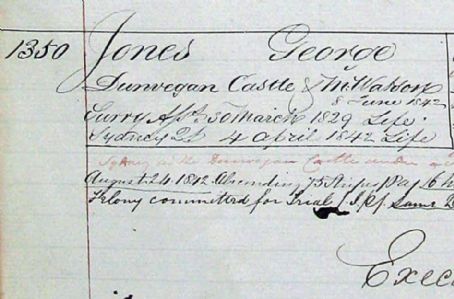 1350 Jones George
Dunvegan Castle & Mc Waldon
8 June 1842
Surry Aps. 30 March 1829 Life.
Sydney QS 4 April 1842 Life
Sydney Dunvegan Castle under
August 24 1842 Absconding 75 Stripes
Felony committed for Trial same
Exec